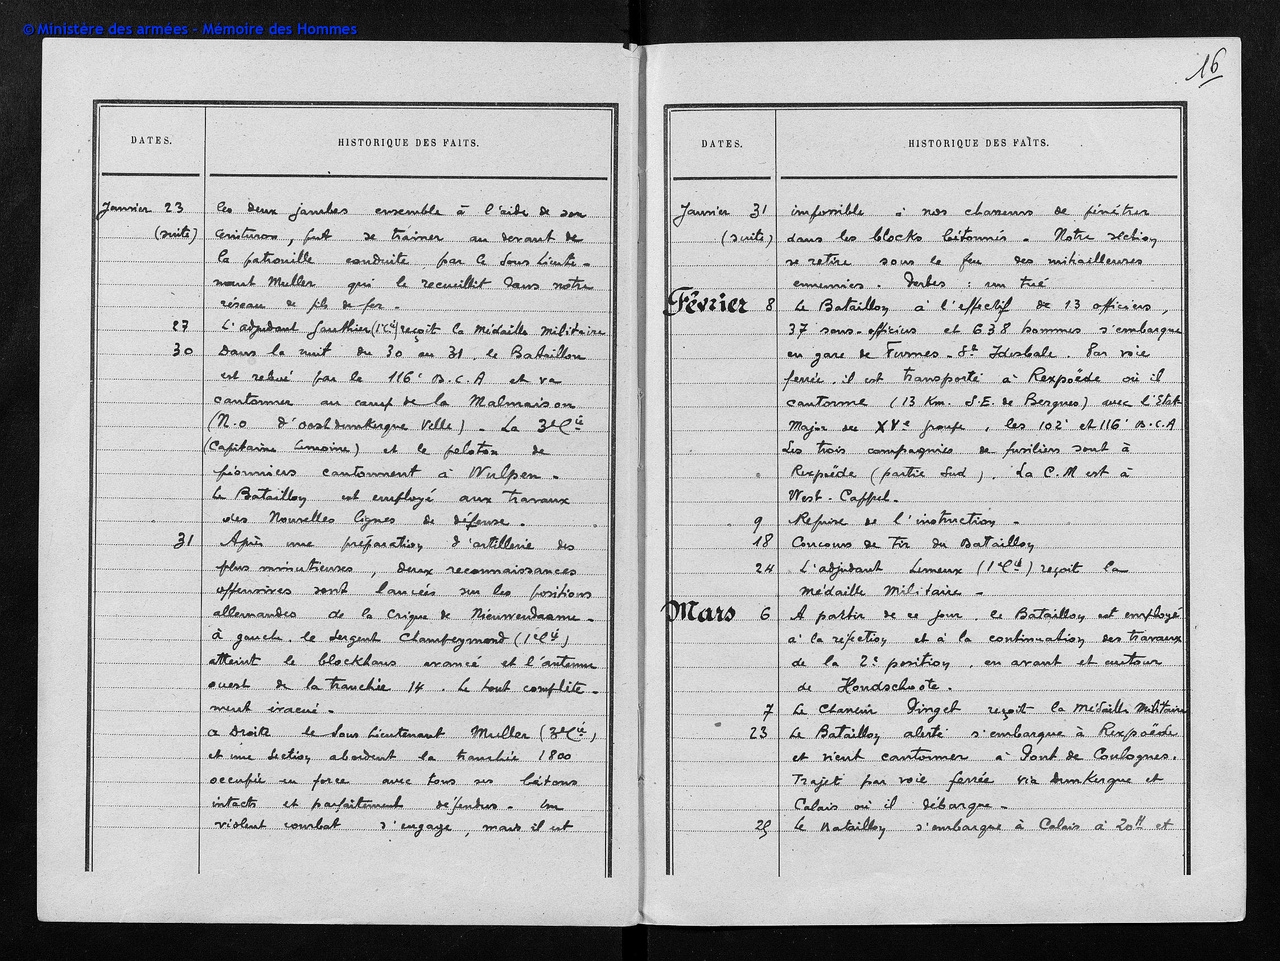 © Ministère des armées - Mémoire des Hommes
DATES.
HISTORIQUE DES FAITS.
Janvier 23 les deux jambes ensemble à l'aide de son
(suite) ceinturon, put se traîner au devant de
la patrouille conduite par le Sous Lieute-
nant Muller qui le recueillit dans notre
réseau de fils de fer.
27 L'adjudant Gauthier (1e Cie) reçoit la Médaille Militaire
30 Dans la nuit du 30 au 31, le Bataillon
est relevé par le 116e B.C.A et va
cantonner au camp de la Malmaison
(N.O d'Oostdunkerque Ville) - La 3e Cie
(Capitaine Lemoine) et le peloton de
pionniers cantonnent à Wulpen.
Le Bataillon est employé aux travaux
des Nouvelles lignes de défense.
31 Après une préparation d'artillerie des
plus minutieuses, deux reconnaissances
offensives sont lancées sur les positions
allemandes de la Crique de Nieuwendamme.
à gauche le Sergent Champeymond (1e Cie)
atteint le blockhaus avancé et l'antenne
ouest de la tranchée 14. Le tout complète-
ment évacué.
à Droite le Sous Lieutenant Muller (3e Cie)
et une Section abordent la tranchée 1800
occupée en force avec tous ses bétons
intacts et parfaitement défendus. Un
violent combat s'engage, mais il est
16
DATES.
HISTORIQUE DES FAITS.
Janvier 31 impossible à nos chasseurs de pénétrer
(suite) dans les blocks bétonnés. Notre section
se retire sous le feu des mitrailleuses
ennemies. Pertes : un tué
Février 8 Le Bataillon à l'effectif de 13 officiers,
37 sous-officiers et 638 hommes s'embarque
en gare de Furnes - St Idesbale. Par voie
ferrée, il est transporté à Rexpoëde où il
cantonne (13 Km. S.E. de Bergues) avec l'Etat
Major du XVe groupe, les 102e et 116e B.C.A
Les trois compagnies de fusiliers sont à
Rexpoëde (partie Sud). La C.M est à
West-Cappel.
9 Reprise de l'instruction.
18 Concours de Tir du Bataillon
24 L'adjudant Lemeux (1e Cie) reçoit la
Médaille Militaire.
Mars 6 A partir de ce jour, le Bataillon est employé
à la réfection et à la continuation des travaux
de la 2e position, en avant et autour
de Hondschoote.
7 Le Chasseur Pinget reçoit la Médaille Militaire
23 Le Bataillon alerté s'embarque à Rexpoëde
et vient cantonner à Pont de Coulognes.
Trajet par voie ferrée via Dunkerque et
Calais où il débarque.
25 Le Bataillon s'embarque à Calais à 20H et